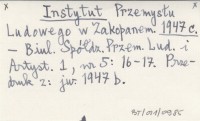 x x
Instytut Przemysłu
Ludowego w Zakopanem. 1947 r.
— Biul. Spółdz. Przem. Lud. i
Artyst. 1, nr 5: 16-17. Prze-
druk z: jw. 1947 b.
BT/011/0985